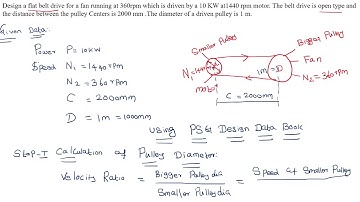 Design a flat belt drive for a fan running at 360rpm which is driven by a 10 KW at1440 rpm motor. The belt drive is open type and
the distance between the pulley Centers is 2000 mm .The diameter of a driven pulley is 1 m.
Given Data:
Power P = 10KW
Speed N1 = 1440rpm
N2 = 360rpm
C = 2000mm
D = 1m = 1000mm
Smaller Pulley
Bigger Pulley
Fan
N1 = 1440rpm
1m = D
N2 = 360rpm
motor
C = 2000mm
Using PSG Design Data Book
Step-I Calculation of Pulley Diameter:
Velocity Ratio = Bigger Pulley dia / Smaller Pulley dia = Speed of Smaller Pulley